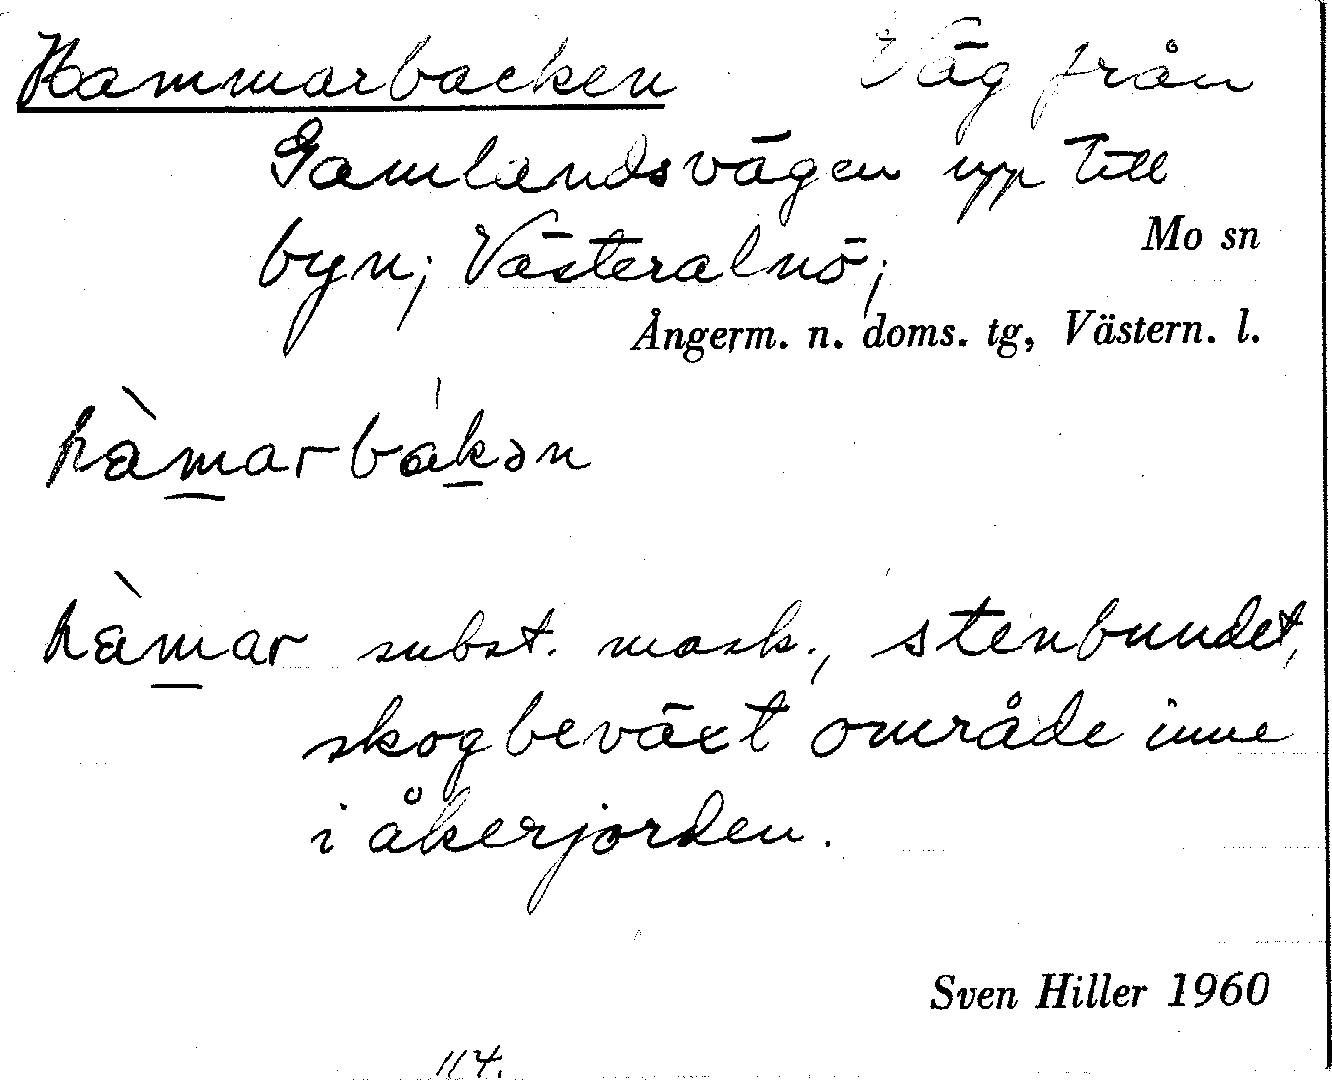 Hammarbacken Väg från
Gamlandsvägen upp till
byn; Västeralnö;
Mo sn
Ångerm. n. doms. tg, Västern. l.
hàmarbákən
hàmar subst. mask., stenbundet,
skogbeväxt område inne
i åkerjorden.
Sven Hiller 1960
114.